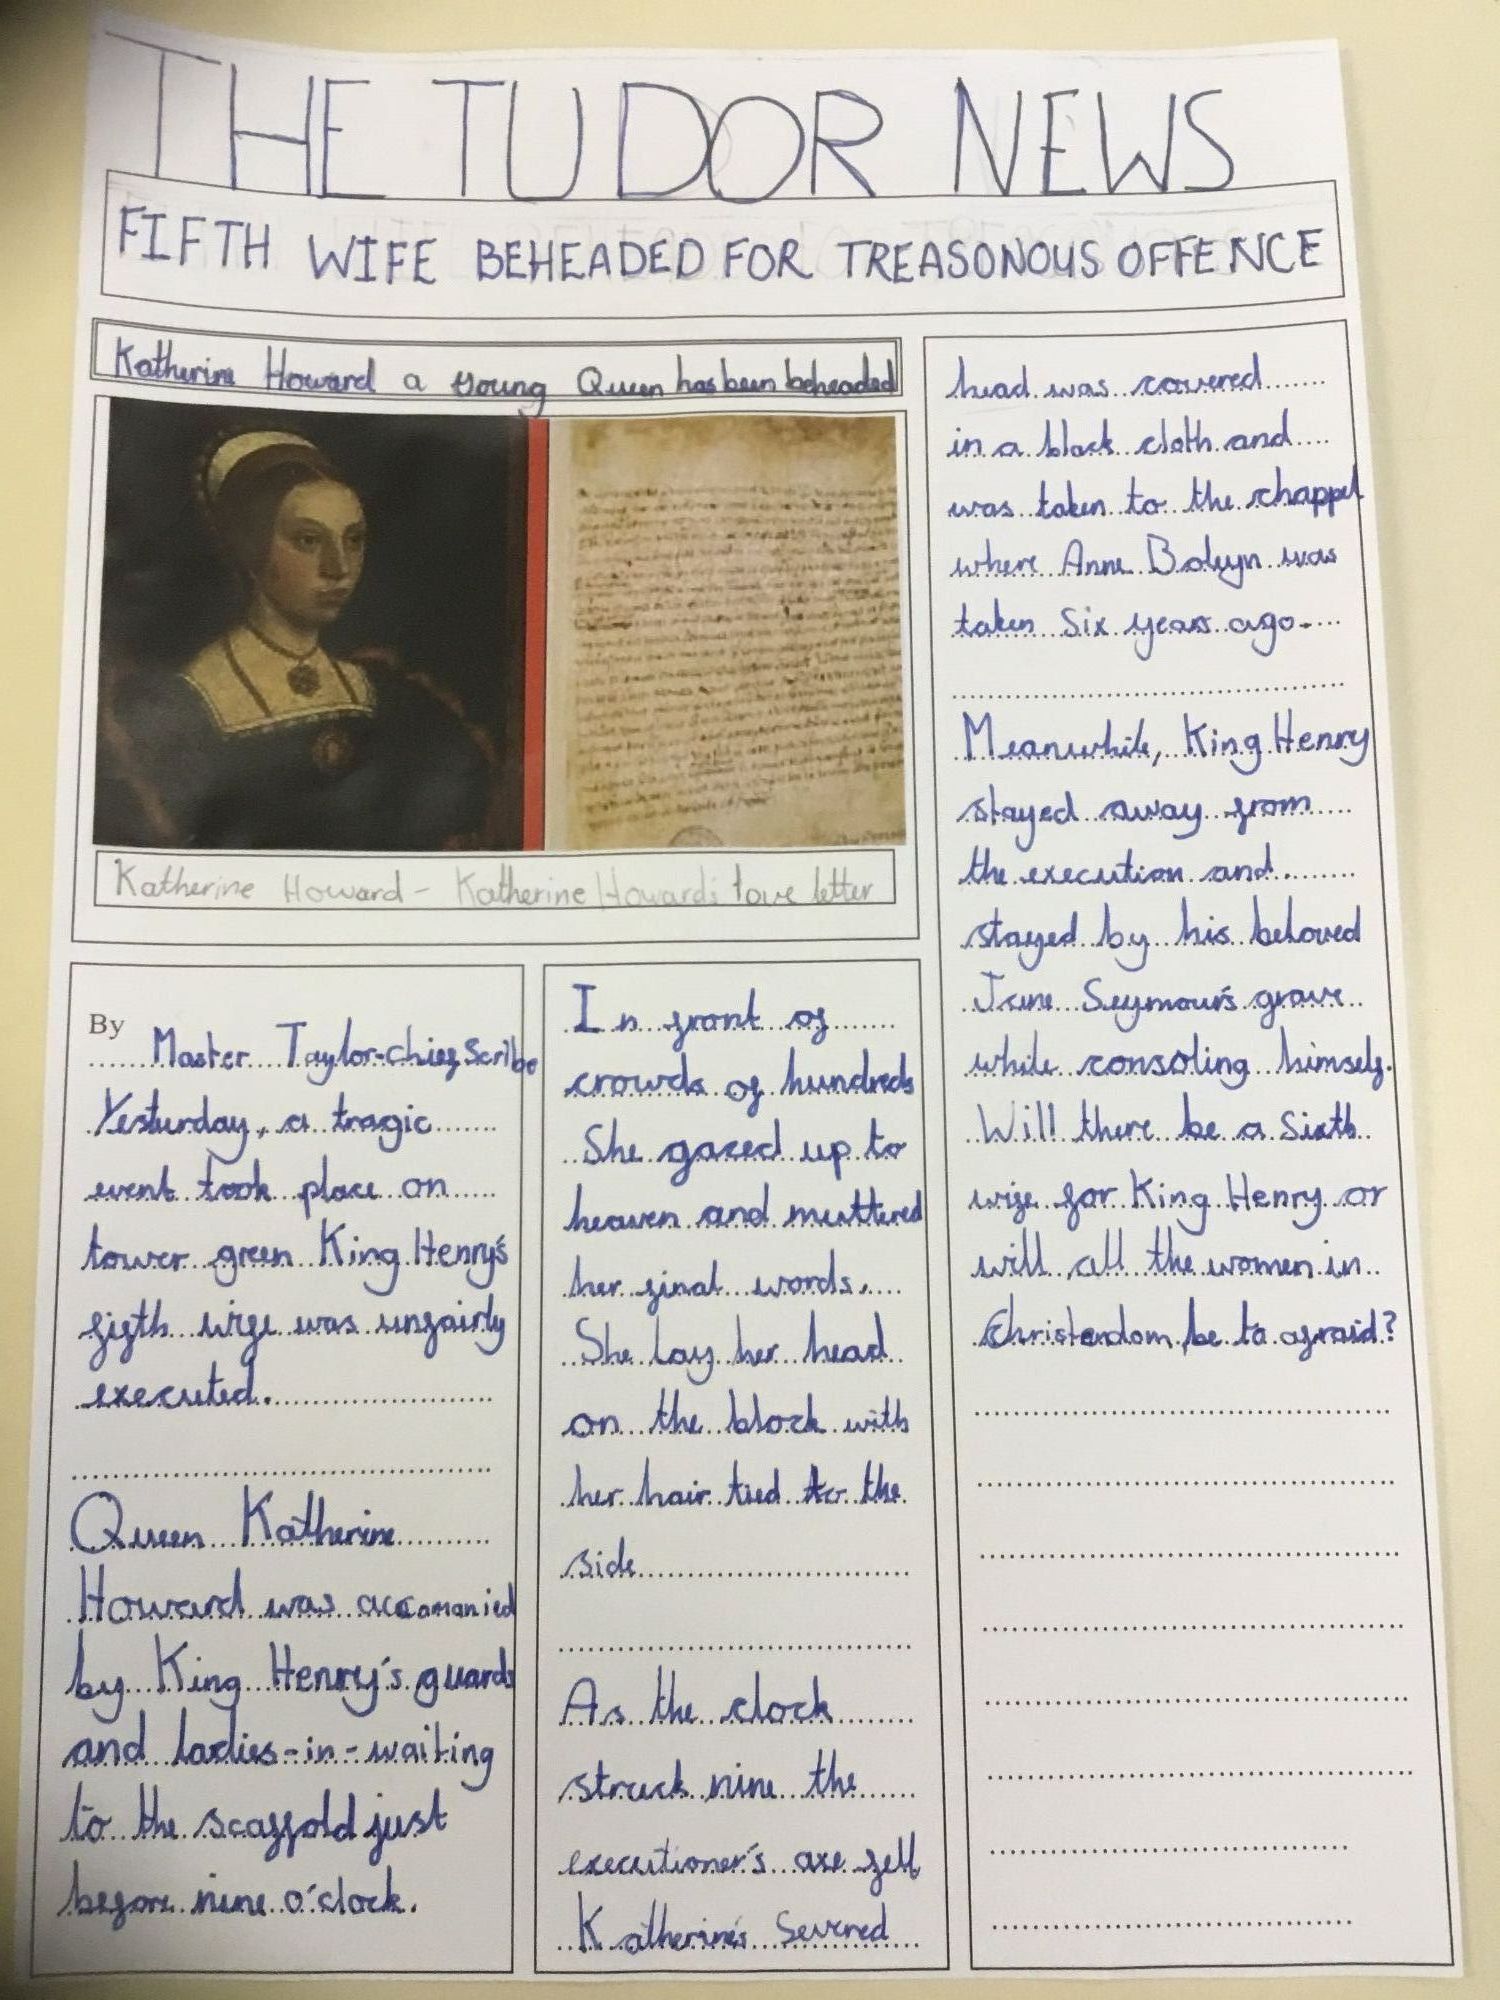 THE TUDOR NEWS
FIFTH WIFE BEHEADED FOR TREASONOUS OFFENCE
Katherine Howard a young Queen has been beheaded
Katherine Howard - Katherine Howards love letter
By
Master Taylor-chief Scribe
Yesturday, a tragic
event took place on
tower green King Henry's
fifth wife was unfairly
executed.
Queen Katherine
Howard was accomanied
by King Henry's guards
and ladies-in-waiting
to the scaffold just
before nine o'clock.
In front of
crowds of hundreds
She gazed up to
heaven and muttered
her final words.
She lay her head
on the block with
her hair tied to the
side
As the clock
struck nine the
executioner's axe fell
Katherine's Severed
head was covered
in a black cloth and
was taken to the chappel
where Anne Boleyn was
taken six years ago.
Meanwhile, King Henry
stayed away from
the execution and
stayed by his beloved
Jane Seymour's grave
while consoling himself.
Will there be a Sixth
wife for King Henry or
will all the women in
Christendom be to afraid?